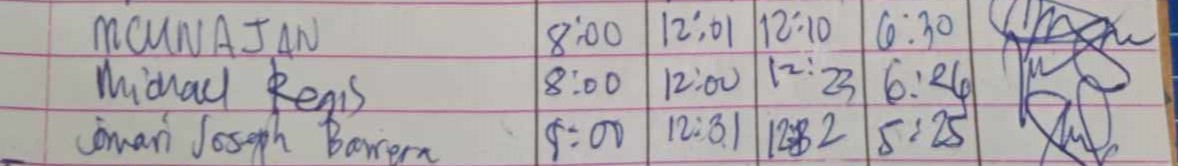 MCUNAJAN 8:00 12:01 12:10 6:30
Michael Regis 8:00 12:00 12:23 6:26
Jomari Joseph Barrera 8:00 12:31 5:25